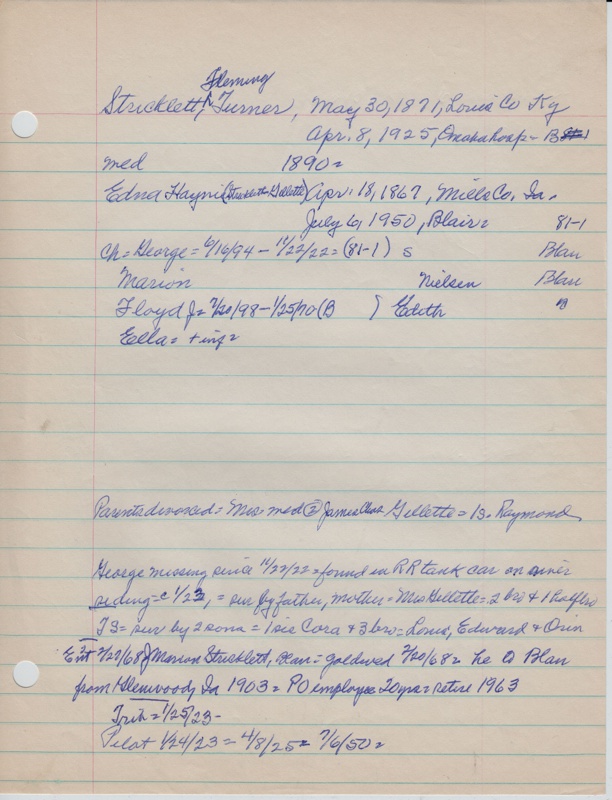 Fleming
Stricklett, ^ Turner, May 30, 1871, Louis Co Ky
Apr. 8, 1925, Omaha hosp = B
med 1890=
Edna Haynie (Stricklett-Gillette) Apr. 18, 1867, Mills Co, Ia.
July 6, 1950, Blair= 81-1
Ch= George = 6/16/94 - 11/22/22 = (81-1) s Blair
Marion Nielsen Blair
Floyd J= 7/20/98 - 1/25/70 (B ) Edith B
Ella= + inf=
Parents divorced = Mrs. med ② James Chas Gillette = 1s. Raymond
George missing since 11/22/22 = found in RR tank car on
siding = c 1/23, = sur by father, mother = Mrs Gillette = 2 bro & 1 half bro
TS= sur by 2 sons = 1 sis Cora & 3 bro = Louis, Edward & Orin
Ent 2/22/68 J Marion Stricklett, Blair = gold wed 2/20/68 = he Blair
from Glenwood, Ia 1903 = PO employee 20 yrs = retire 1963
Trib = 1/25/23 -
Pilot 1/24/23 = 4/8/25 = 7/6/50 =